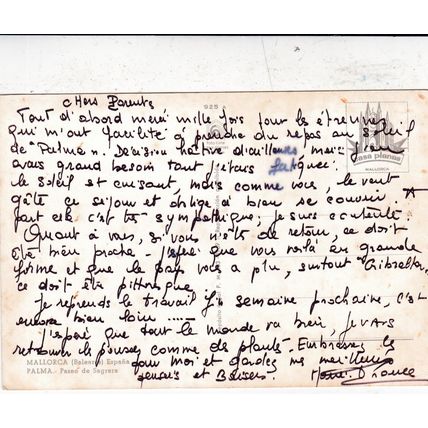 Chers Parents
Tout d'abord merci mille fois pour les étrennes
qui m'ont facilité à prendre du repos au soleil
de "Palma". Décision hâtive d'ailleurs mais j'en
avais grand besoin tant j'étais fatiguée.
le soleil est cuisant, mais comme vous, le vent
gâte ce séjour et oblige à bien se couvrir.
part cela c'est très sympathique, je suis contente.
Quant à vous, si vous n'êtes de retour, ce doit
être bien proche. J'espère que vous voilà en grande
forme et que le pays vous a plu, surtout "Gibraltar"
ce doit être pittoresque
Je reprends le travail semaine prochaine, c'est
encore bien loin .....
J'espère que tout le monde va bien, je vais
retrouver les pousses comme des plants. Embrassez les
pour moi et gardez mes meilleures
pensées et Baisers.
925
casa planas
MALLORCA
MALLORCA (Baleares) España
PALMA.- Paseo de Sagrera